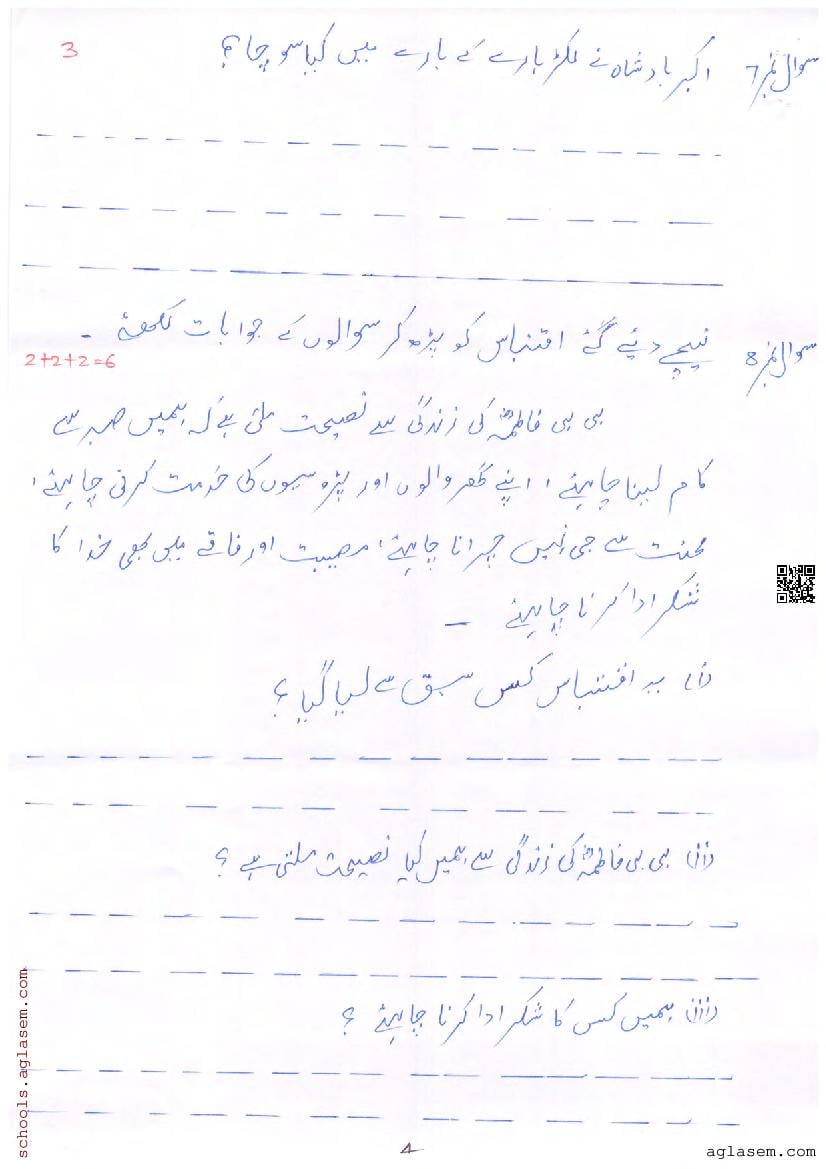 سوال نمبر 7 اکبر بادشاہ نے لکڑہارے کے بارے میں کیا سوچا؟
3
سوال نمبر 8 نیچے دیئے گئے اقتباس کو پڑھ کر سوالوں کے جوابات لکھئے ۔
2+2+2=6
بی بی فاطمہؓ کی زندگی سے نصیحت ملتی ہے کہ ہمیں صبر سے
کام لینا چاہیئے، اپنے گھر والوں اور پڑوسیوں کی خدمت کرنی چاہیئے،
محنت سے جی نہیں چرانا چاہیئے، مصیبت اور فاقے میں بھی خدا کا
شکر ادا کرنا چاہیئے ۔
(i) یہ اقتباس کس سبق سے لیا گیا؟
(ii) بی بی فاطمہؓ کی زندگی سے ہمیں کیا نصیحت ملتی ہے؟
(iii) ہمیں کس کا شکر ادا کرنا چاہیئے؟
4
schools.aglasem.com
aglasem.com